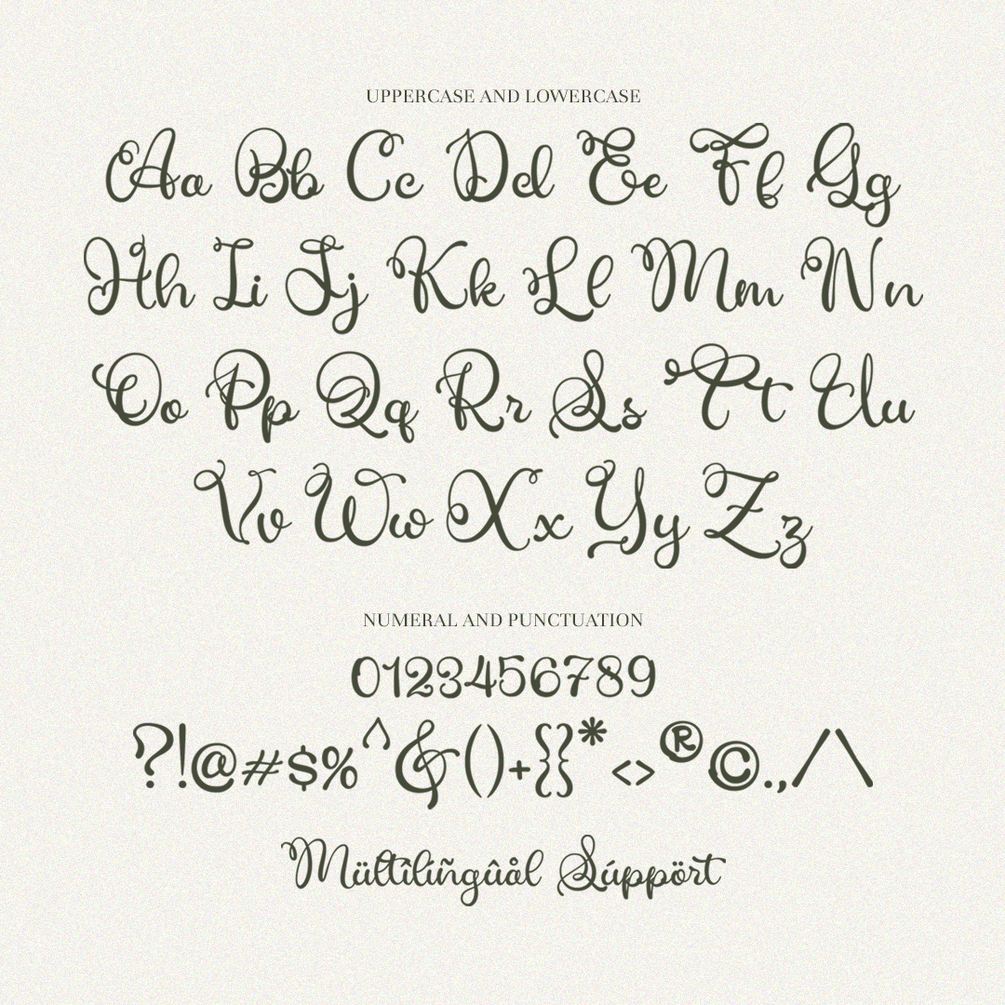 UPPERCASE AND LOWERCASE
Aa Bb Cc Dd Ee Ff Gg
Hh Ii Jj Kk Ll Mm Nn
Oo Pp Qq Rr Ss Tt Uu
Vv Ww Xx Yy Zz
NUMERAL AND PUNCTUATION
0123456789
?!@#$%^&()+{}*<>®©.,/\
Mültîlíñgûål Súppört